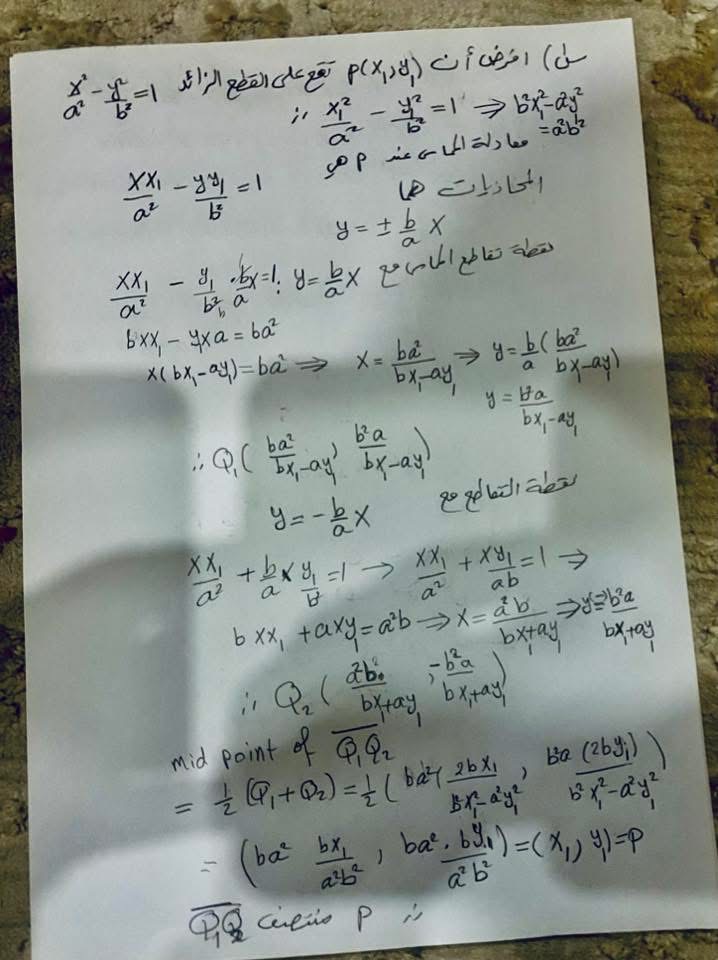 افرض أن P(x₁, y₁) تقع على القطع الزائد x²/a² - y²/b² = 1
∴ x₁²/a² - y₁²/b² = 1 ⇒ b²x₁² - a²y² = a²b²
معادلة المماس عند P هي
xx₁/a² - yy₁/b² = 1
المحاذيات هما
y = ± b/a x
نقطة تقاطع المماس مع y = b/a x :
xx₁/a² - y₁/b² · b/a x = 1
bxx₁ - y₁xa = ba²
x(bx₁ - ay₁) = ba² ⇒ x = ba²/(bx₁ - ay₁) ⇒ y = b/a (ba²/(bx₁ - ay₁))
y = b²a/(bx₁ - ay₁)
∴ Q₁( ba²/(bx₁ - ay₁) , b²a/(bx₁ - ay₁) )
نقطة التقاطع مع
y = - b/a x
xx₁/a² + b/a x y₁/b² = 1 → xx₁/a² + xy₁/ab = 1 ⇒
bxx₁ + axy₁ = a²b ⇒ x = a²b/(bx₁ + ay₁) ⇒ y = b²a/(bx₁ + ay₁)
∴ Q₂( a²b/(bx₁ + ay₁) , -b²a/(bx₁ + ay₁) )
mid point of Q₁Q₂
= 1/2 (Q₁ + Q₂) = 1/2 ( ba²( 2bx₁/(b²x₁² - a²y₁²) , b²a (2by₁)/(b²x₁² - a²y₁²) )
= ( ba² bx₁/a²b² , ba² · by₁/a²b² ) = (x₁, y₁) = P
∴ P منتصف Q₁Q₂